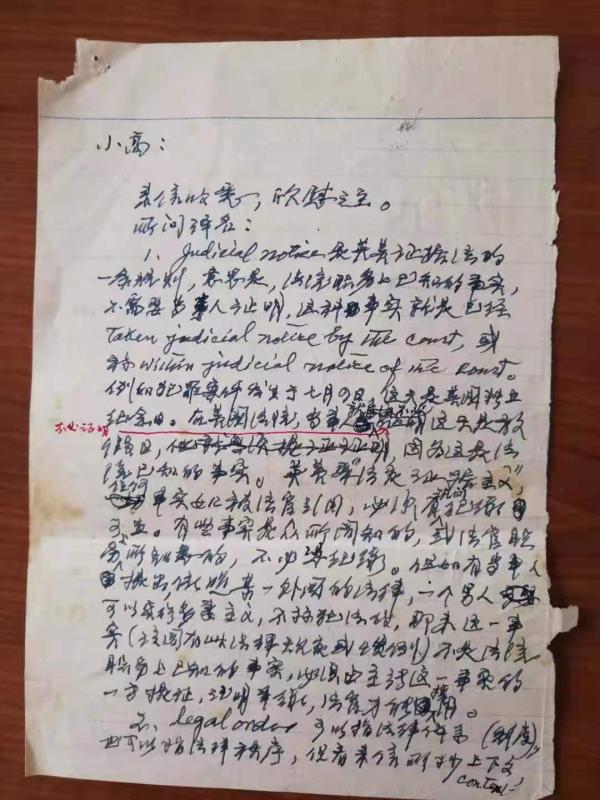 小高:
来信收悉,欣慰之至。
所问译名:
1、Judicial notice是英美证据法的
一条规则,意思是,法院职务上已知的事实,
不需要当事人证明,这种事实就是已经
taken judicial notice by the court, 或
称within judicial notice of the court.
例如犯罪案件发生于七月四日,这天是美国独立
纪念日。在美国法院,当事人 证明这天是放
不必证明
假日, 因为这是法
院已知的事实。英美采“法定证据主义”,
任何事实如被法庭引用,必须有证据
可查。有些事实是众所周知的,或法官职
务所知悉的,不必要证据。但如有当事人
提出,依照某一外国的法律,一个男人
可以实行多妻主义,不构犯法律,那末这一事
实(该国有此法律规定或惯例)不是法院
职务上已知的事实,必须由主张这一事实的
一方提证,证明事实,法庭才能采用。
2、legal order 可以指法律体系(制度),
也可以指法律秩序,但看来信所抄上下文
context